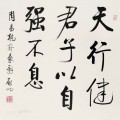 天行健
君子以自
强不息
周易乾卦象辭 启功